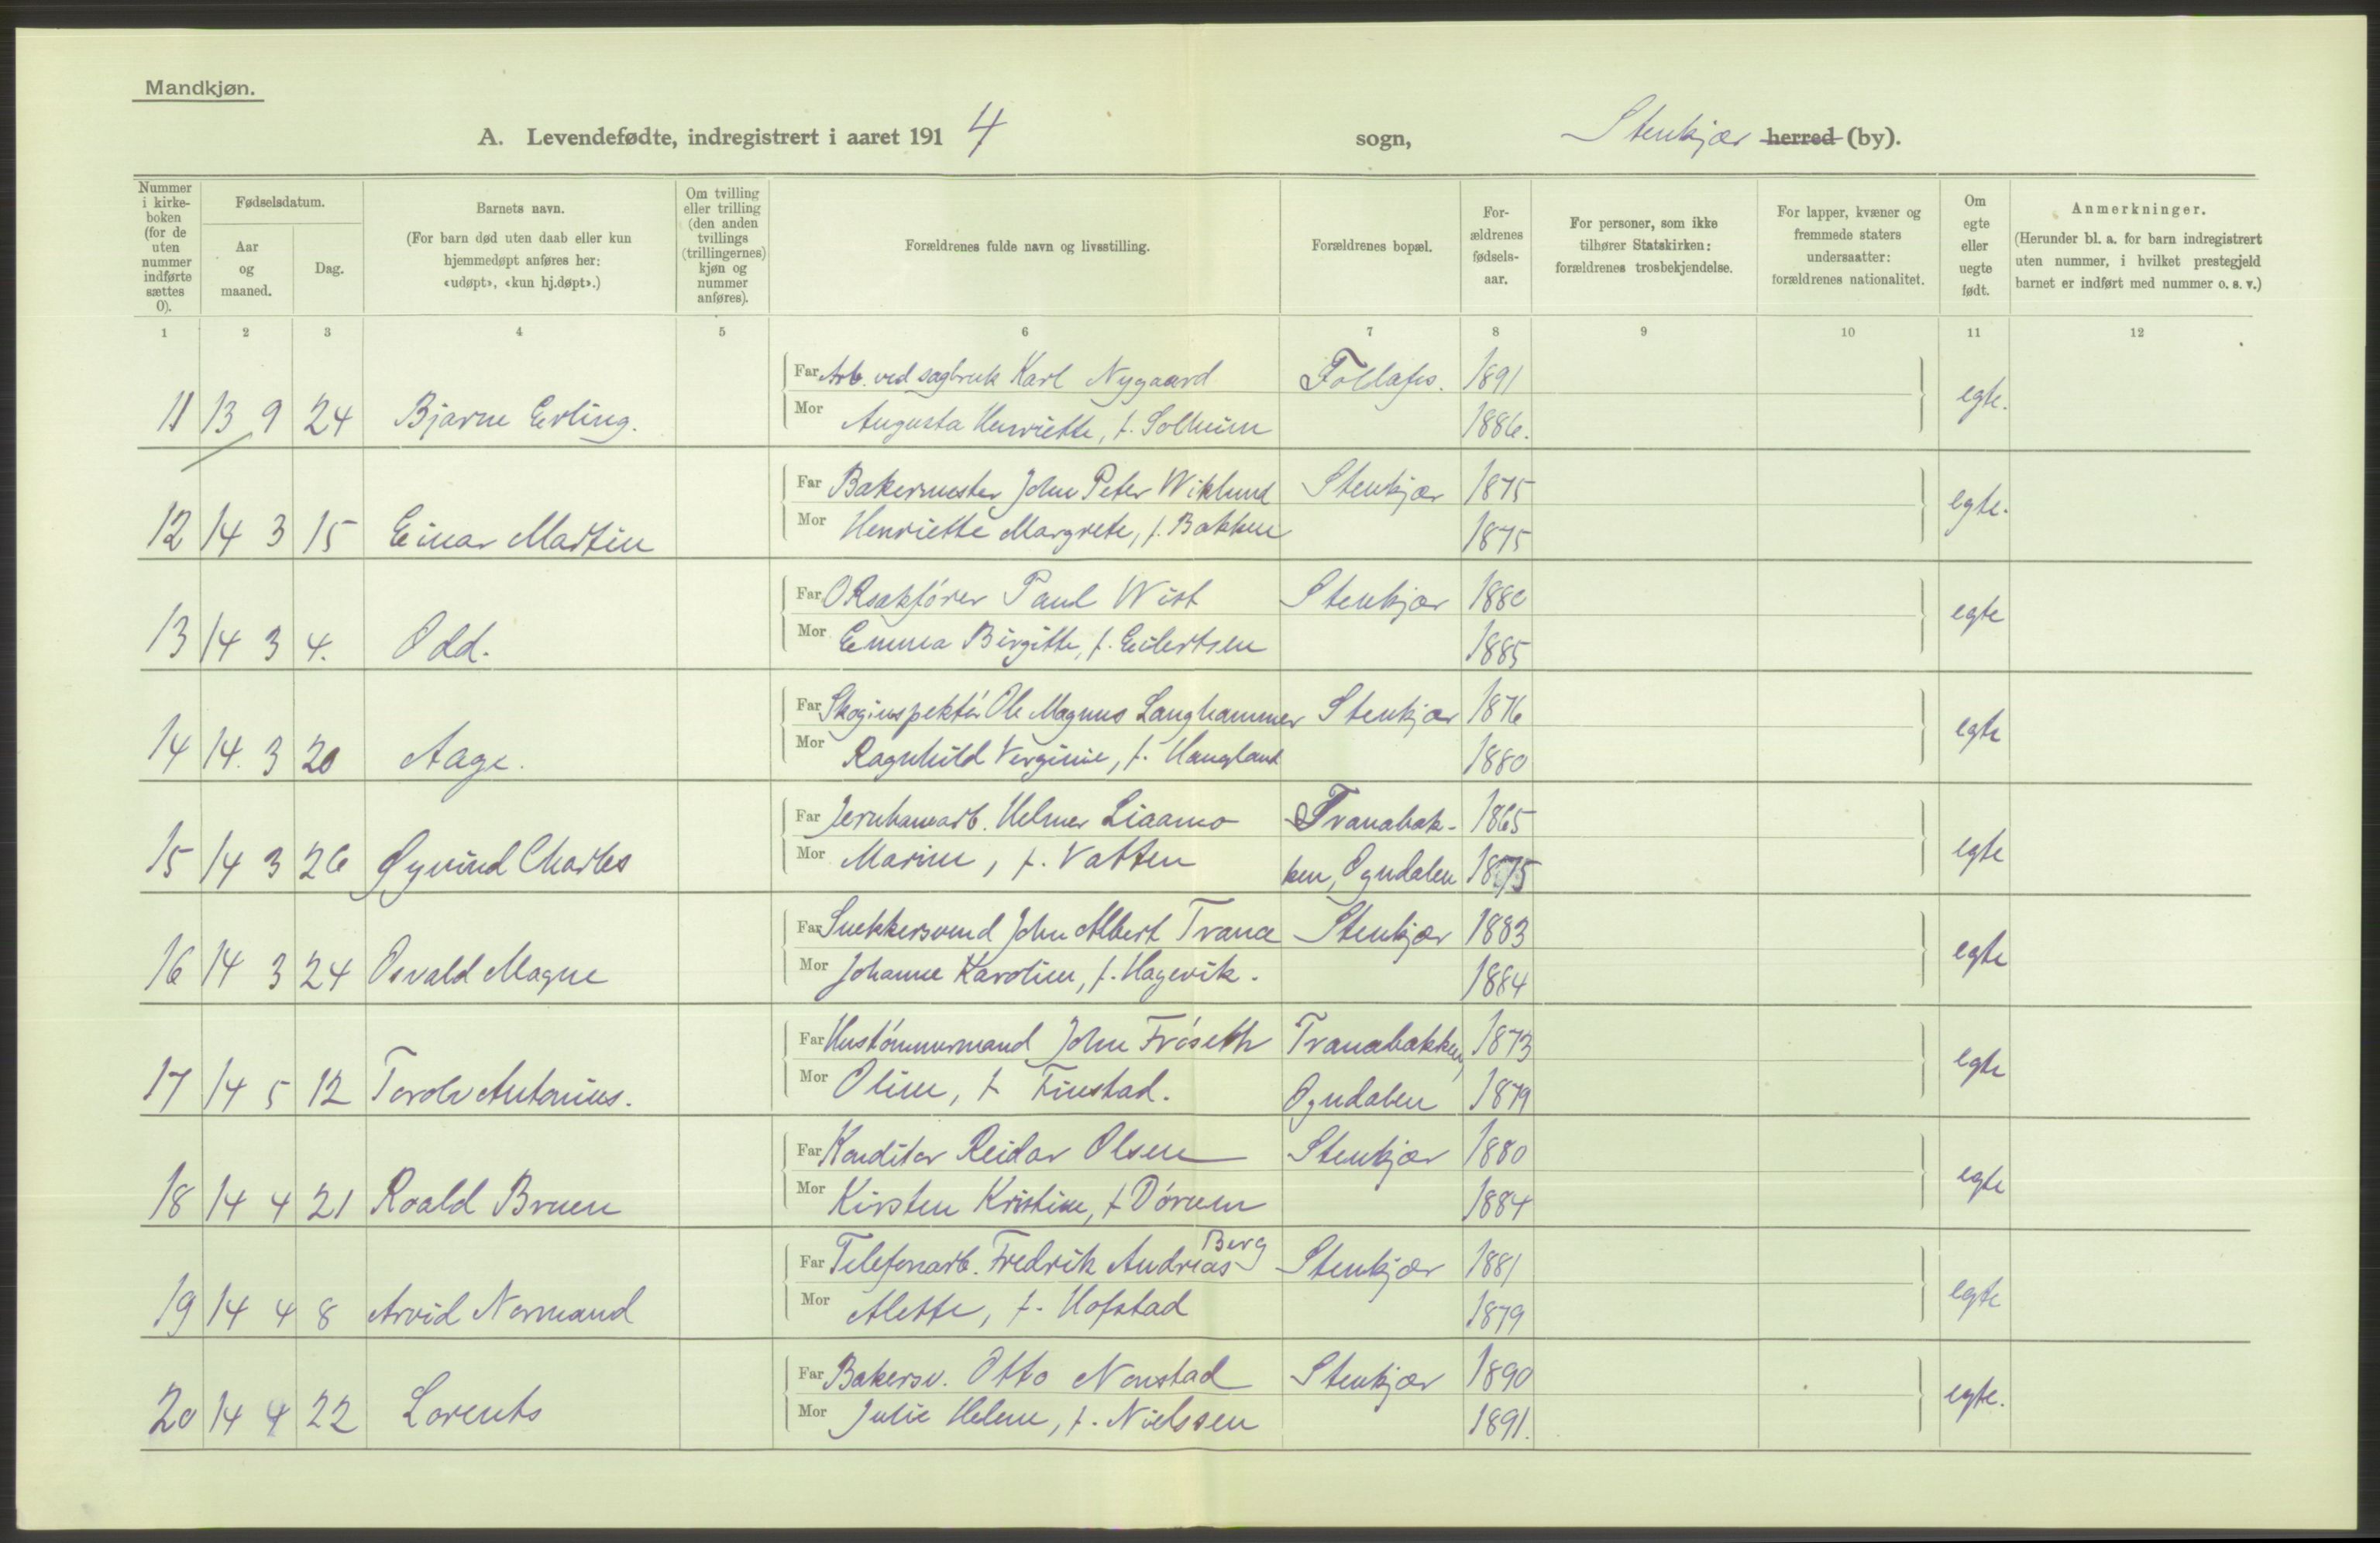 Mandkjøn.
A. Levendefødte, indregistrert i aaret 1914 sogn, Stenkjær herred (by).
Nummer i kirke-boken (for de uten nummer indførte sættes 0).
Fødselsdatum.
Aar og maaned.
Dag.
Barnets navn.
(For barn død uten daab eller kun hjemmedøpt anføres her: «udøpt», «kun hj.døpt».)
Om tvilling eller trilling (den anden tvillings (trillingernes) kjøn og nummer anføres).
Forældrenes fulde navn og livsstilling.
Forældrenes bopæl.
For-ældrenes fødsels-aar.
For personer, som ikke tilhører Statskirken: forældrenes trosbekjendelse.
For lapper, kvæner og fremmede staters undersaatter: forældrenes nationalitet.
Om egte eller uegte født.
Anmerkninger.
(Herunder bl. a. for barn indregistrert uten nummer, i hvilket prestegjeld barnet er indført med nummer o. s. v.)
1 2 3 4 5 6 7 8 9 10 11 12
Far Arb. ved sagbruk Karl Nygaard Follafos. 1891
11 13 9 24 Bjarne Erling. Mor Augusta Henriette, f. Solheim 1886. egte.
Far Bakermester John Peter Wiklund Stenkjær 1875
12 14 3 15 Einar Martin Mor Henriette Margrete, f. Bakken 1875 egte.
Far ORsakfører Paul Wist Stenkjær 1880
13 14 3 4. Odd. Mor Emma Birgitte, f. Eilertsen 1885 egte
Far Skoginspektør Ole Magnus Langhammer Stenkjær 1876
14 14. 3 20 Aage. Mor Ragnhild Verginie, f. Haugland 1880 egte
Far Jernbanearb. Helmer Liaamo Tranabak- 1865
15 14 3 26 Øyvind Charles Mor Marine, f. Vatten ken, Ogndalen 1875 egte
Far Snekkersvend John Albert Trana Stenkjær 1883
16 14 3 24 Osvald Magne Mor Johanne Karoline, f. Hagevik. 1884 egte
Far Hustømmermand John Frøseth Tranabakken, 1873
17 14 5 12 Torolv Antonius. Mor Oline, f Finstad. Ogndalen 1879 egte
Far Konditor Reidar Olsen Stenkjær 1880
18 14 4 21 Roald Bruen Mor Kirsten Kristine, f Dørum 1884 egte
Far Telefonarb. Fredrik Andreas Berg Stenkjær 1881
19 14 4 8 Arvid Normand Mor Alette, f. Hofstad 1879 egte
Far Bakersv. Otto Nonstad Stenkjær 1890
20 14 4 22 Lorents Mor Julie Helene, f. Nielssen 1891. egte.